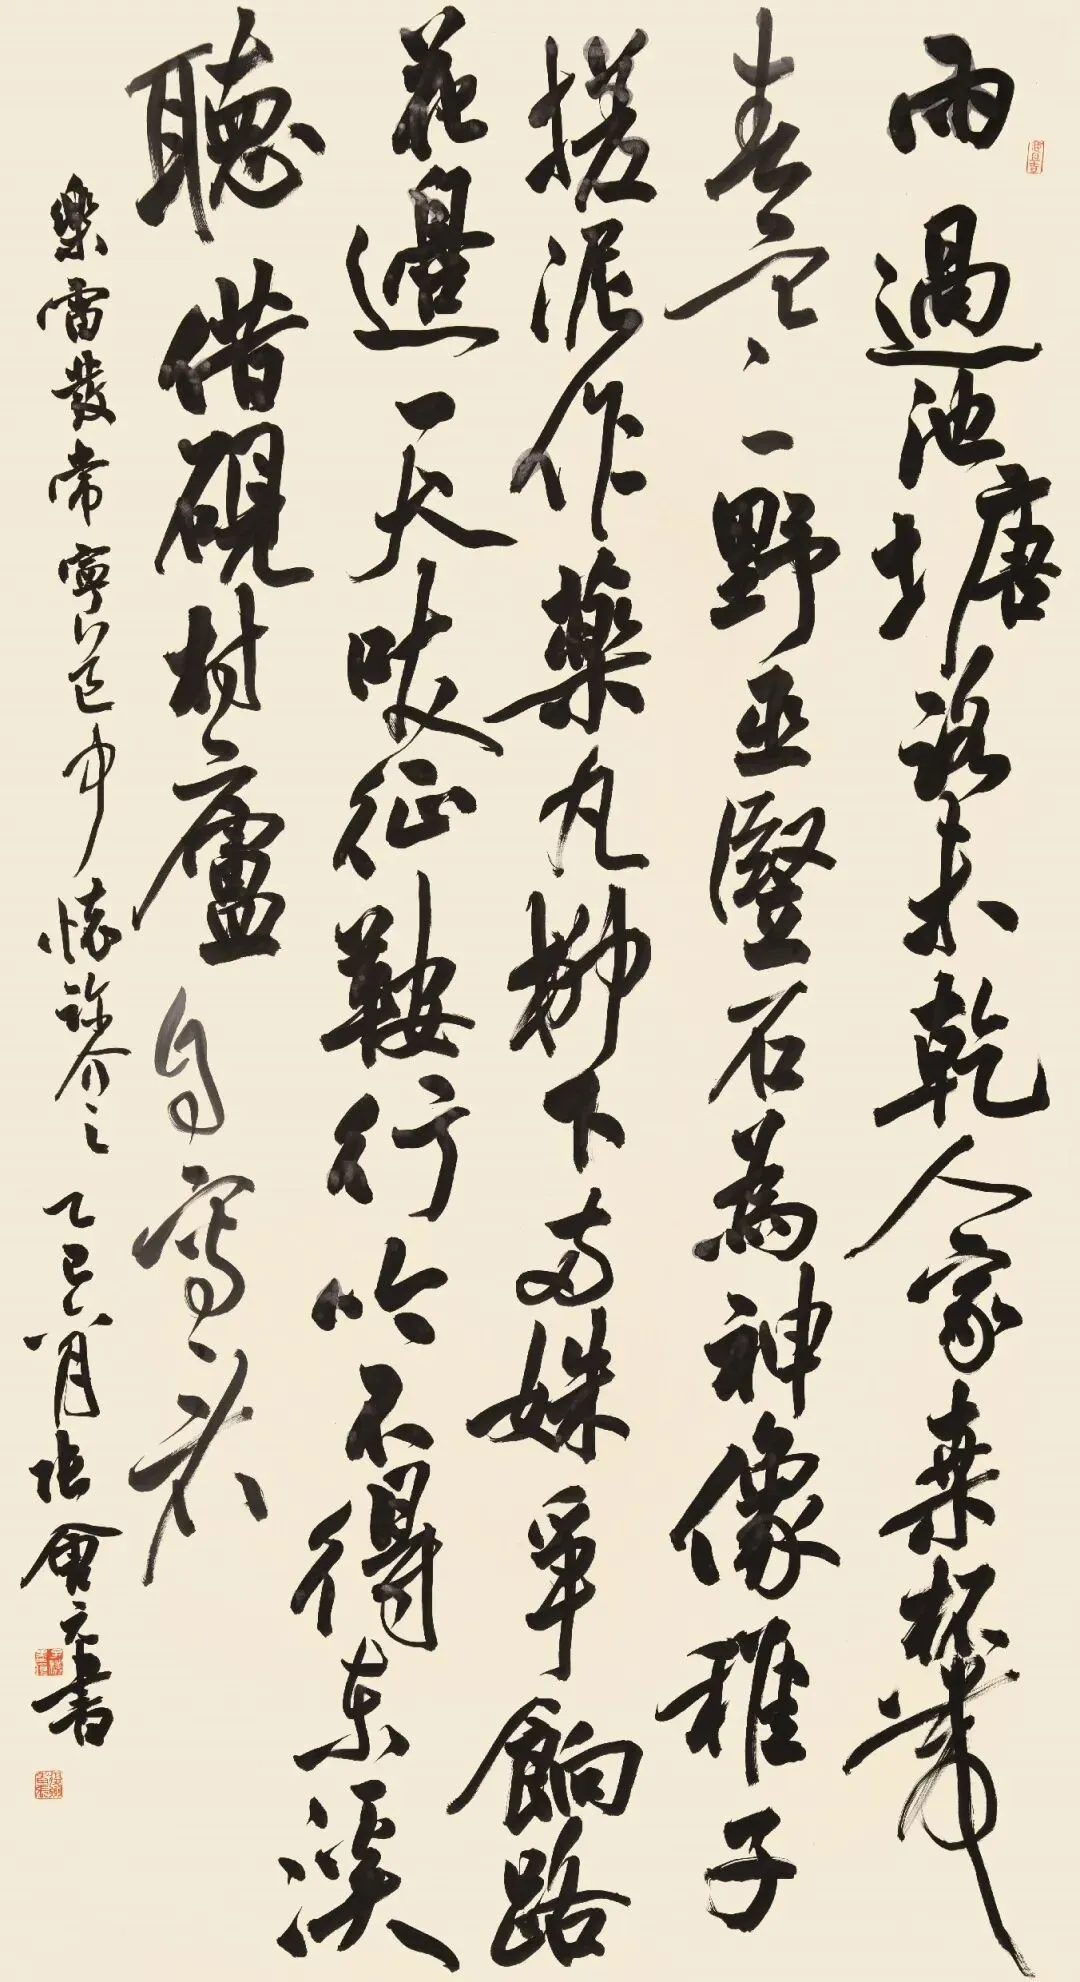 雨過池塘路未乾人家桒柘帶
春寒野巫竪石為神像稚子
搓泥作藥丸柳下兩姝爭餉路
花邊一犬吠征鞍行吟不得東溪
聽借硯村廬自寫看
樂雷發常寧道中懷許介之 乙巳八月 張會元書